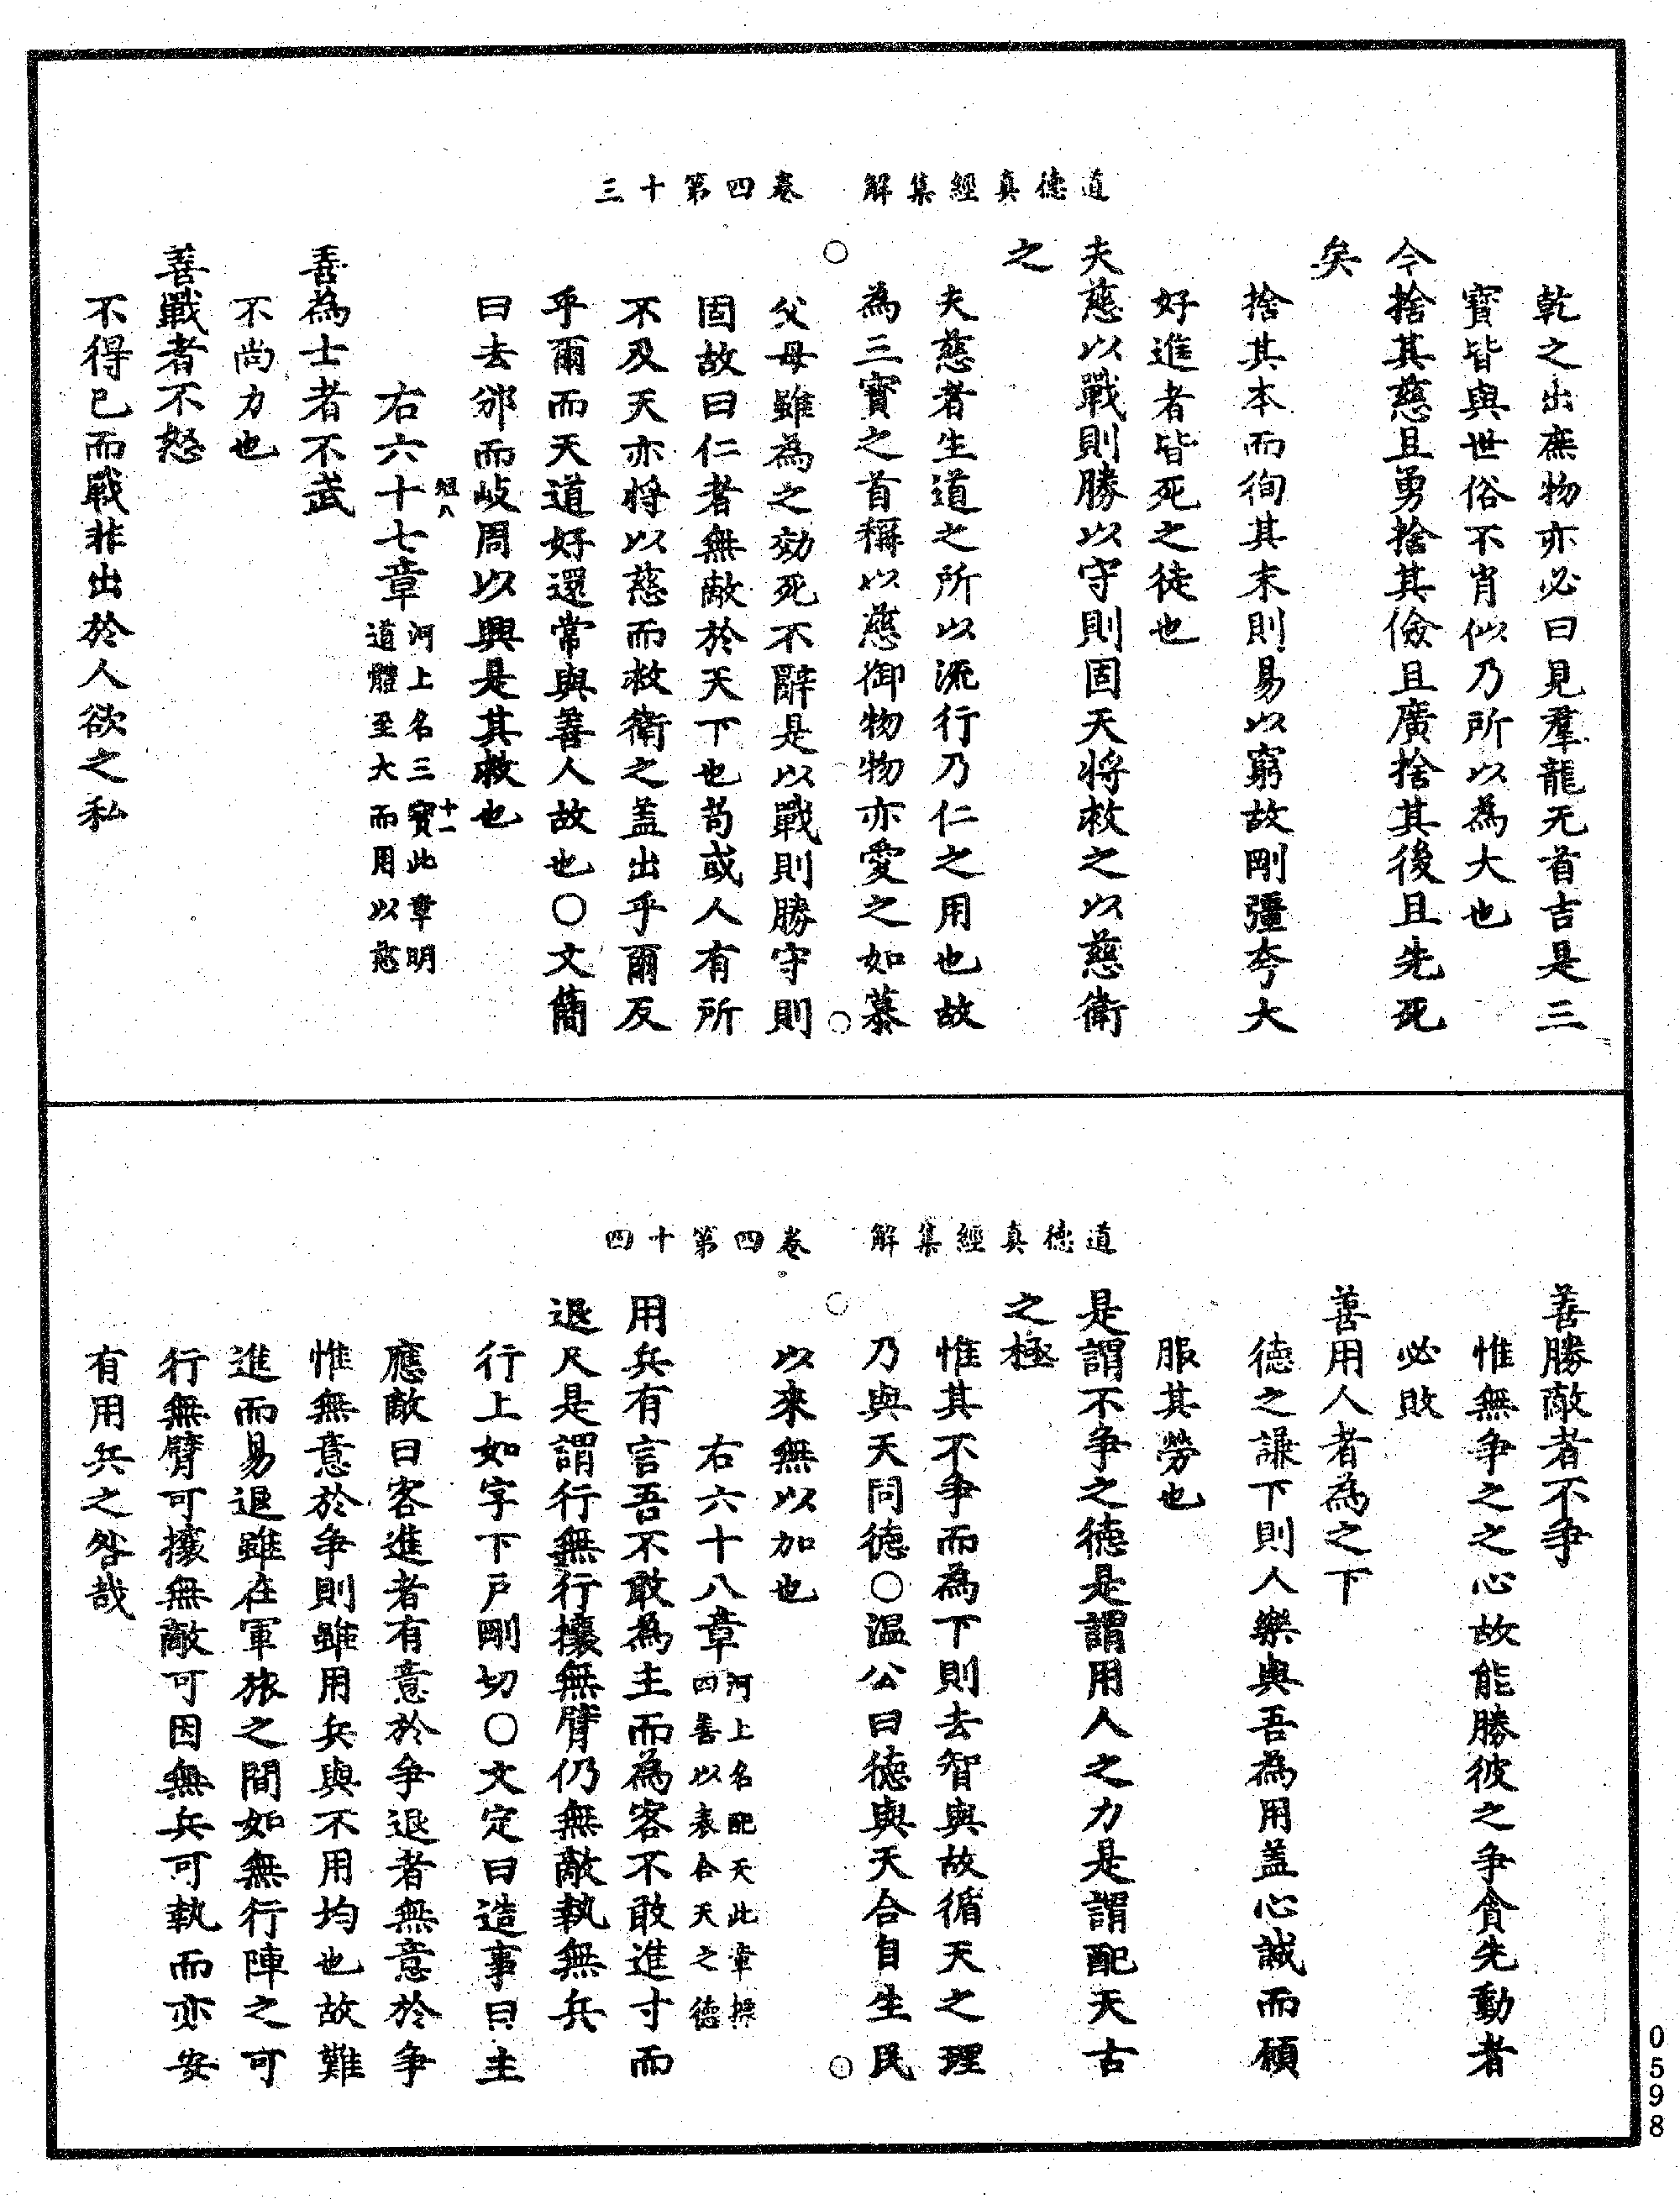 道德真經集解　卷四第十三
乾之出庶物亦必曰見羣龍无首吉是三
寶皆與世俗不肖似乃所以為大也
今捨其慈且勇捨其儉且廣捨其後且先死
矣
捨其本而徇其末則易以窮故剛彊夸大
好進者皆死之徒也
夫慈以戰則勝以守則固天將救之以慈衛
之
夫慈者生道之所以流行乃仁之用也故
為三寶之首稱以慈御物物亦愛之如慕
父母雖為之効死不辭是以戰則勝守則
固故曰仁者無敵於天下也苟或人有所
不及天亦將以慈而救衛之盖出乎爾反
乎爾而天道好還常與善人故也〇文蕳
曰去邠而岐周以興是其救也
短八
右六十七章河上名三寶此章明
道體至大而用以慈
十一
善為士者不武
不尚力也
善戰者不怒
不得已而戰非出於人欲之私
道德真經集解　卷四第十四
善勝敵者不爭
惟無爭之之心故能勝彼之爭貪先動者
必敗
善用人者為之下
德之謙下則人樂與吾為用盖心誠而願
服其勞也
是謂不爭之德是謂用人之力是謂配天古
之極
惟其不爭而為下則去智與故循天之理
乃與天同德〇温公曰德與天合自生民
以來無以加也
右六十八章河上名配天此章操
四善以表合天之德
用兵有言吾不敢為主而為客不敢進寸而
退尺是謂行無行攘無臂仍無敵執無兵
行上如字下戶剛切〇文定曰造事曰主
應敵曰客進者有意於爭退者無意於爭
惟無意於爭則雖用兵與不用均也故難
進而易退雖在軍旅之間如無行陣之可
行無臂可攘無敵可因無兵可執而亦安
有用兵之咎哉
0598